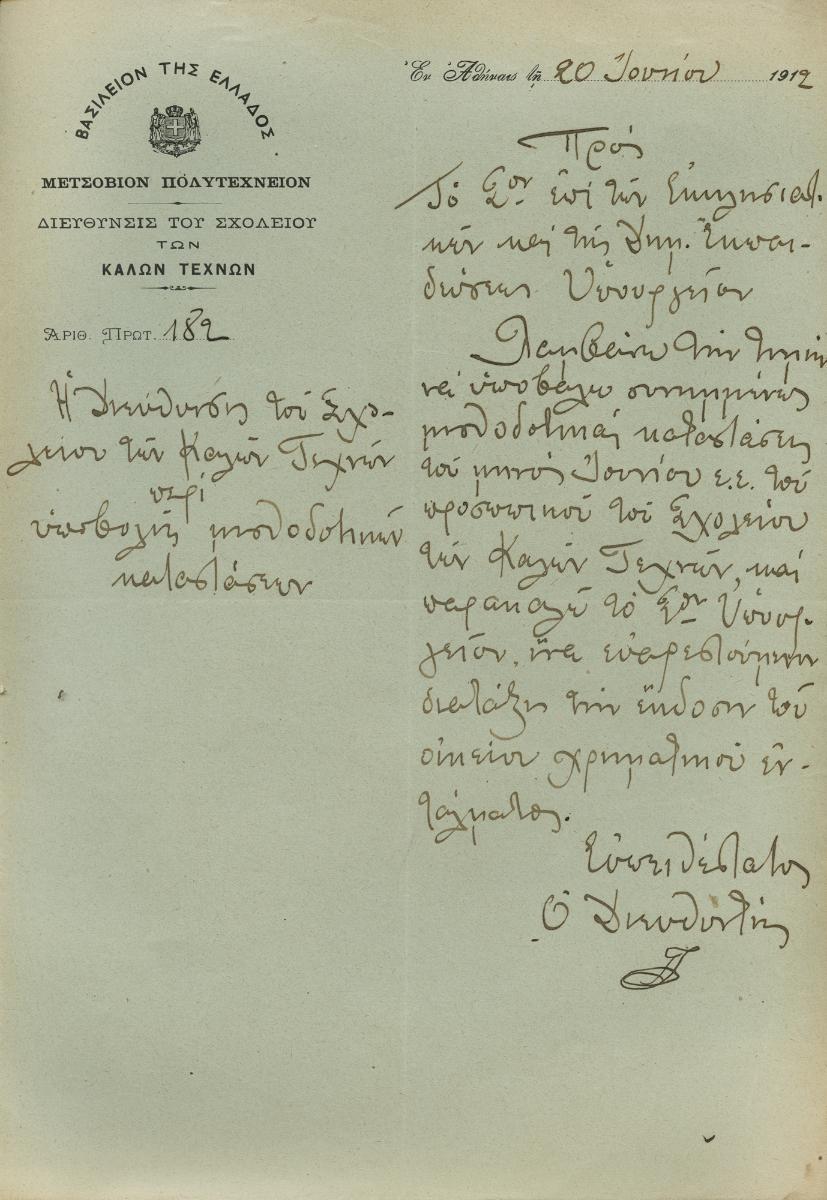 ΒΑΣΙΛΕΙΟΝ ΤΗΣ ΕΛΛΑΔΟΣ
ΜΕΤΣΟΒΙΟΝ ΠΟΛΥΤΕΧΝΕΙΟΝ
ΔΙΕΥΘΥΝΣΙΣ ΤΟΥ ΣΧΟΛΕΙΟΥ
ΤΩΝ
ΚΑΛΩΝ ΤΕΧΝΩΝ
ΑΡΙΘ. ΠΡΩΤ. 182
Ἡ Διεύθυνσις τοῦ Σχο-
λείου τῶν Καλῶν Τεχνῶν
περὶ
ὑποβολῆς μισθοδοτικῶν
καταστάσεων
Ἐν Ἀθήναις τῇ 20 Ἰουνίου 1912
Πρὸς
Τὸ Σὸν ἐπὶ τῶν Ἐκκλησιαστ-
κῶν καὶ τῆς Δημ. Ἐκπαι-
δεύσεως Ὑπουργεῖον
Λαμβάνω τὴν τιμὴν
νὰ ὑποβάλω συνημμένως
μισθοδοτικὰς καταστάσεις
τοῦ μηνὸς Ἰουνίου ἐ.ἔ. τοῦ
προσωπικοῦ τοῦ Σχολείου
τῶν Καλῶν Τεχνῶν, καὶ
παρακαλῶ τὸ Σὸν Ὑπουρ-
γεῖον, ἵνα εὐαρεστούμενον
διατάξῃ τὴν ἔκδοσιν τοῦ
οἰκείου χρηματικοῦ ἐν-
τάλματος.
Εὐπειθέστατος
Ὁ Διευθυντὴς